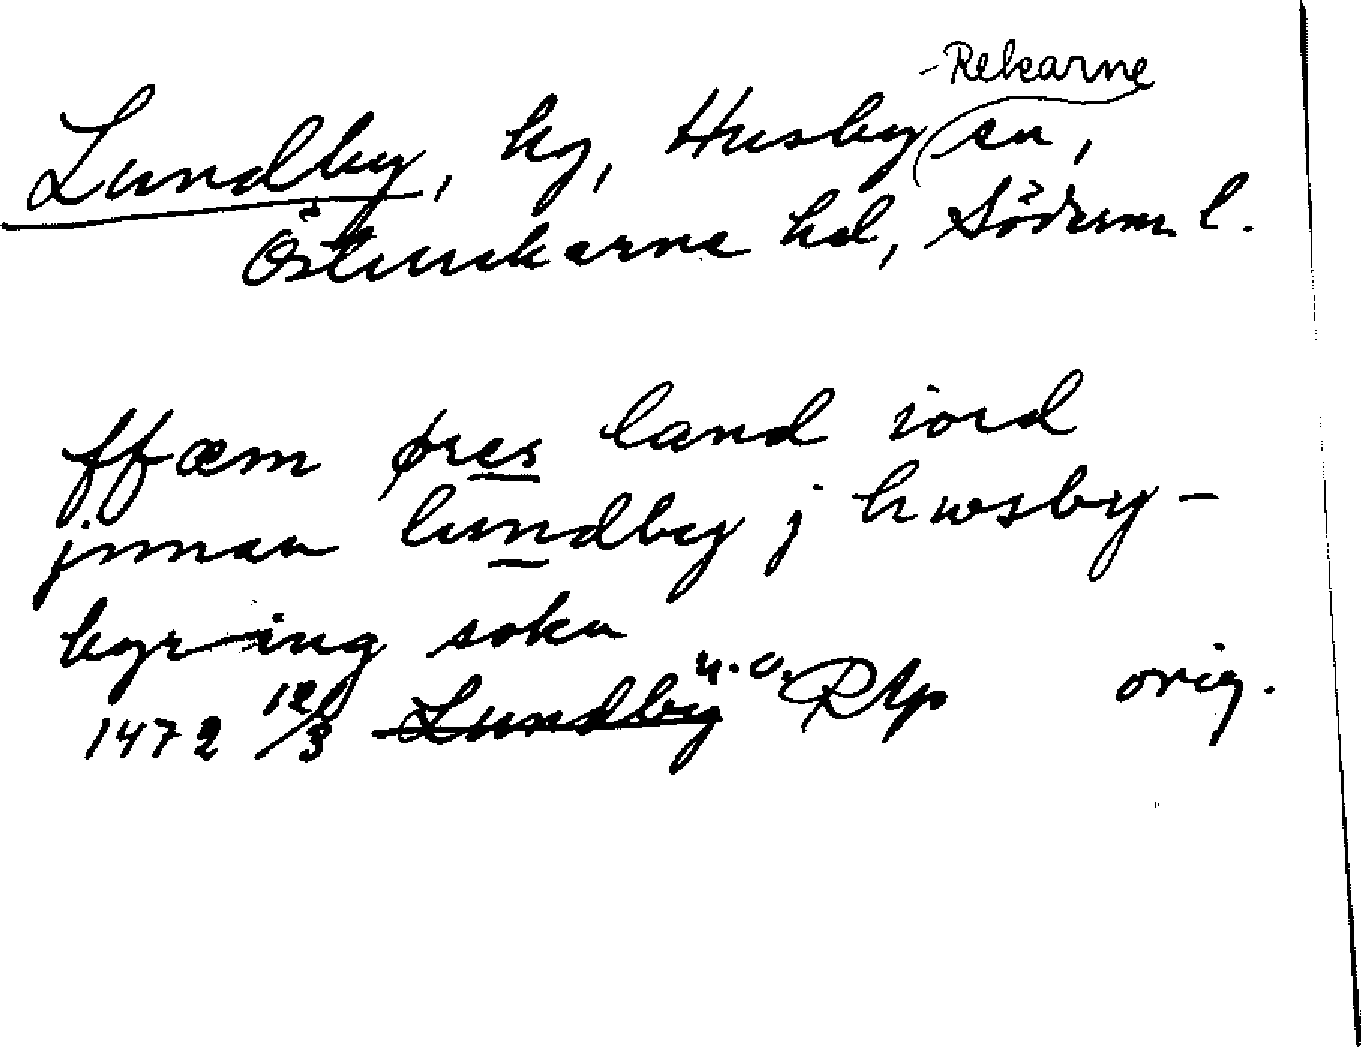 -Rekarne
Lundby, by, Husby sn,
Österrekarne hd, Söderm. l.
ffæm øres land iord
jnnan lundby j hwsby-
byring sokn
1472 12/3 Lundby u.o. RAp orig.